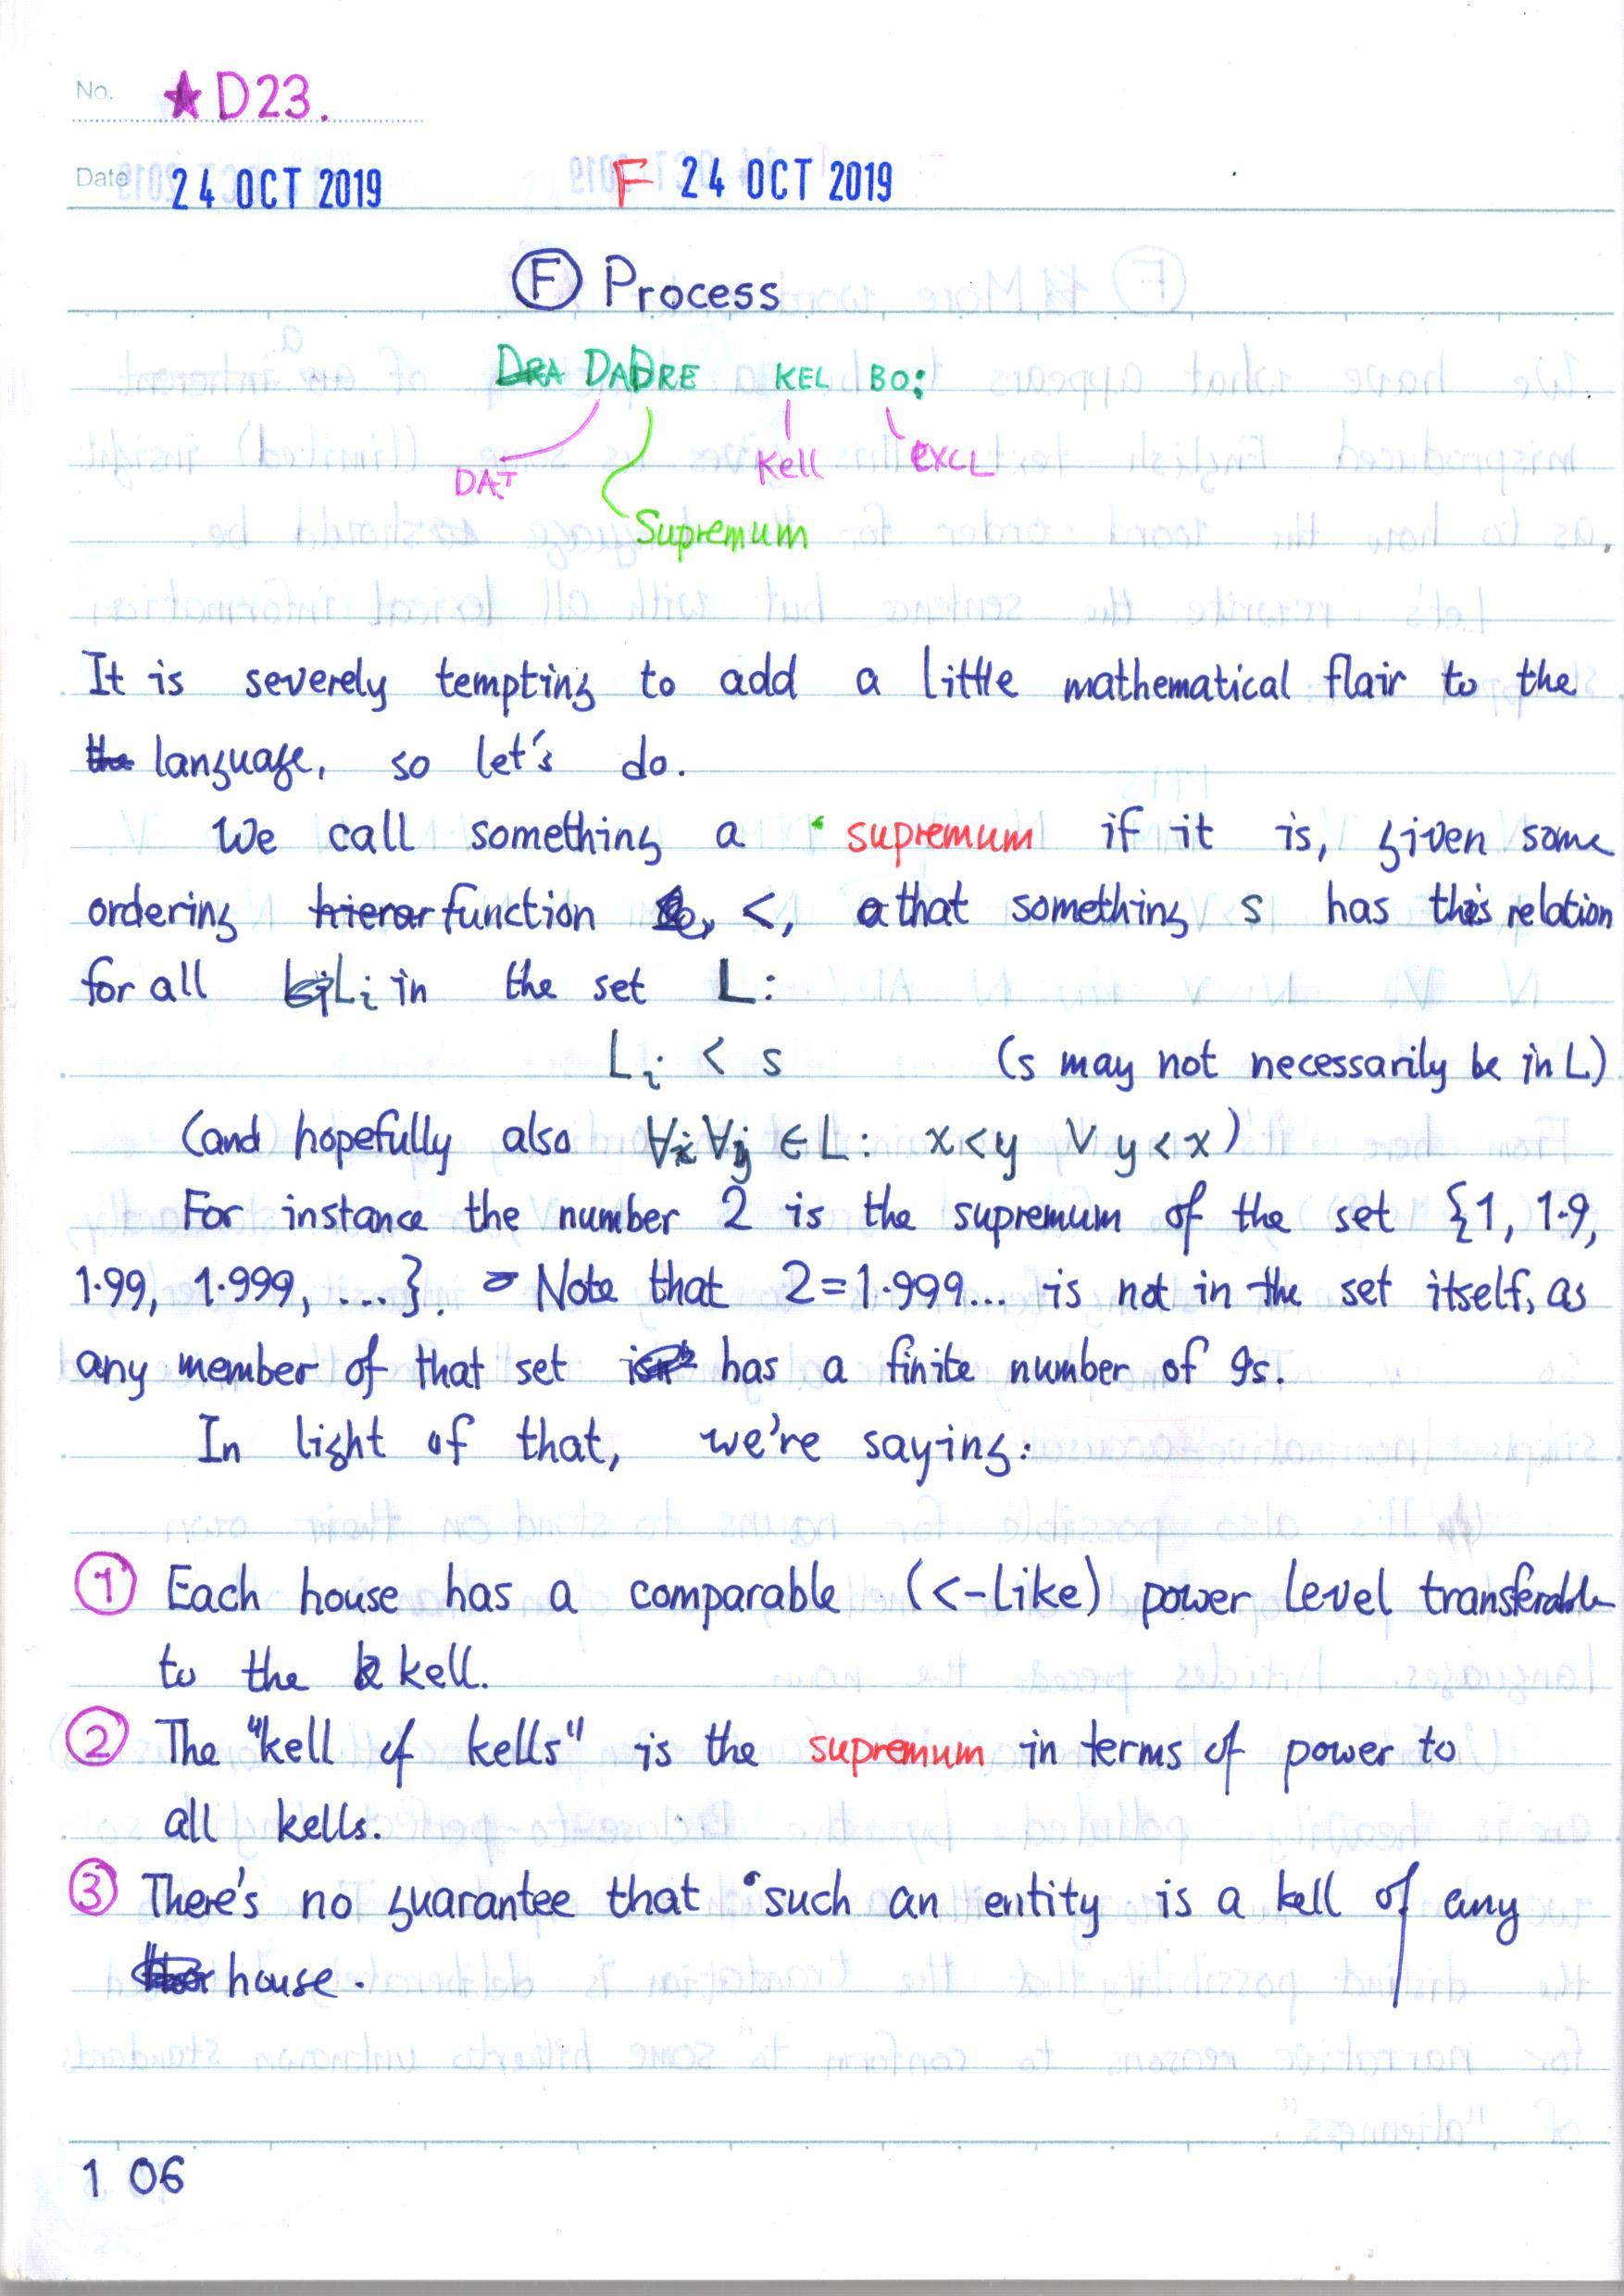 No. ★D23.
Date 24 OCT 2019 F 24 OCT 2019
Ⓕ Process
DRA DADRE KEL BO:
DAT Kell EXCL
Supremum
It is severely tempting to add a little mathematical flair to the
the language, so let's do.
We call something a supremum if it is, given some
ordering hierar function <, that something s has this relation
for all Li in the set L:
Li < s (s may not necessarily be in L)
(and hopefully also ∀x∀y ∈ L: x<y ∨ y<x)
For instance the number 2 is the supremum of the set {1, 1.9,
1.99, 1.999, ...}. Note that 2=1.999... is not in the set itself, as
any member of that set has a finite number of 9s.
In light of that, we're saying:
① Each house has a comparable (<-like) power level transferable
to the kell.
② The "kell of kells" is the supremum in terms of power to
all kells.
③ There's no guarantee that such an entity is a kell of any
house.
1 06